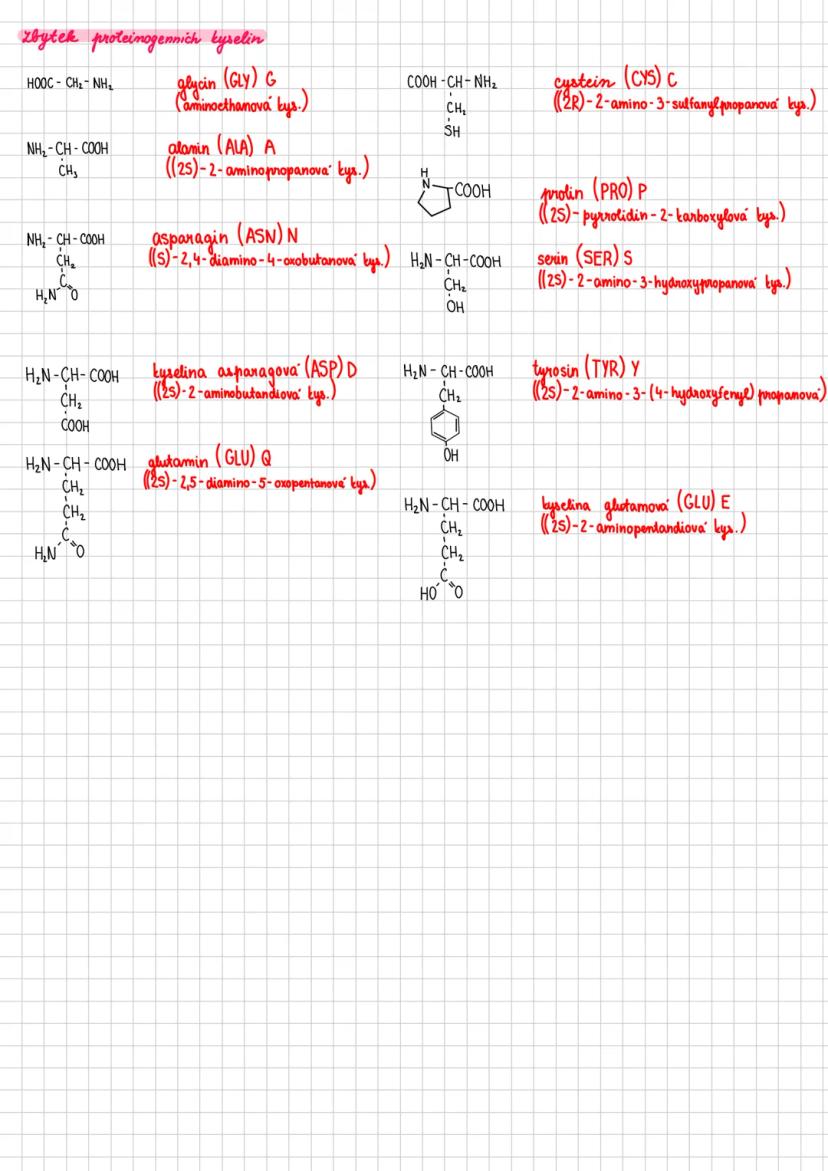 zbytek proteinogenních kyselin
HOOC - CH₂ - NH₂
glycin (GLY) G
(aminoethanová kys.)
NH₂ - CH - COOH
CH₃
alanin (ALA) A
((2S) - 2 - aminopropanová kys.)
NH₂ - CH - COOH
CH₂
C
H₂N O
asparagin (ASN) N
((S) - 2,4 - diamino - 4 - oxobutanová kys.)
H₂N - CH - COOH
CH₂
COOH
kyselina asparagová (ASP) D
((2S) - 2 - aminobutandiová kys.)
H₂N - CH - COOH
CH₂
CH₂
C
H₂N O
glutamin (GLU) Q
((2S) - 2,5 - diamino - 5 - oxopentanová kys.)
COOH - CH - NH₂
CH₂
SH
cystein (CYS) C
((2R) - 2 - amino - 3 - sulfanylpropanová kys.)
H
N
COOH
prolin (PRO) P
((2S) - pyrrolidin - 2 - karboxylová kys.)
H₂N - CH - COOH
CH₂
OH
serin (SER) S
((2S) - 2 - amino - 3 - hydroxypropanová kys.)
H₂N - CH - COOH
CH₂
OH
tyrosin (TYR) Y
((2S) - 2 - amino - 3 - (4 - hydroxyfenyl) propanová)
H₂N - CH - COOH
CH₂
CH₂
C
HO O
kyselina glutamová (GLU) E
((2S) - 2 - aminopentandiová kys.)